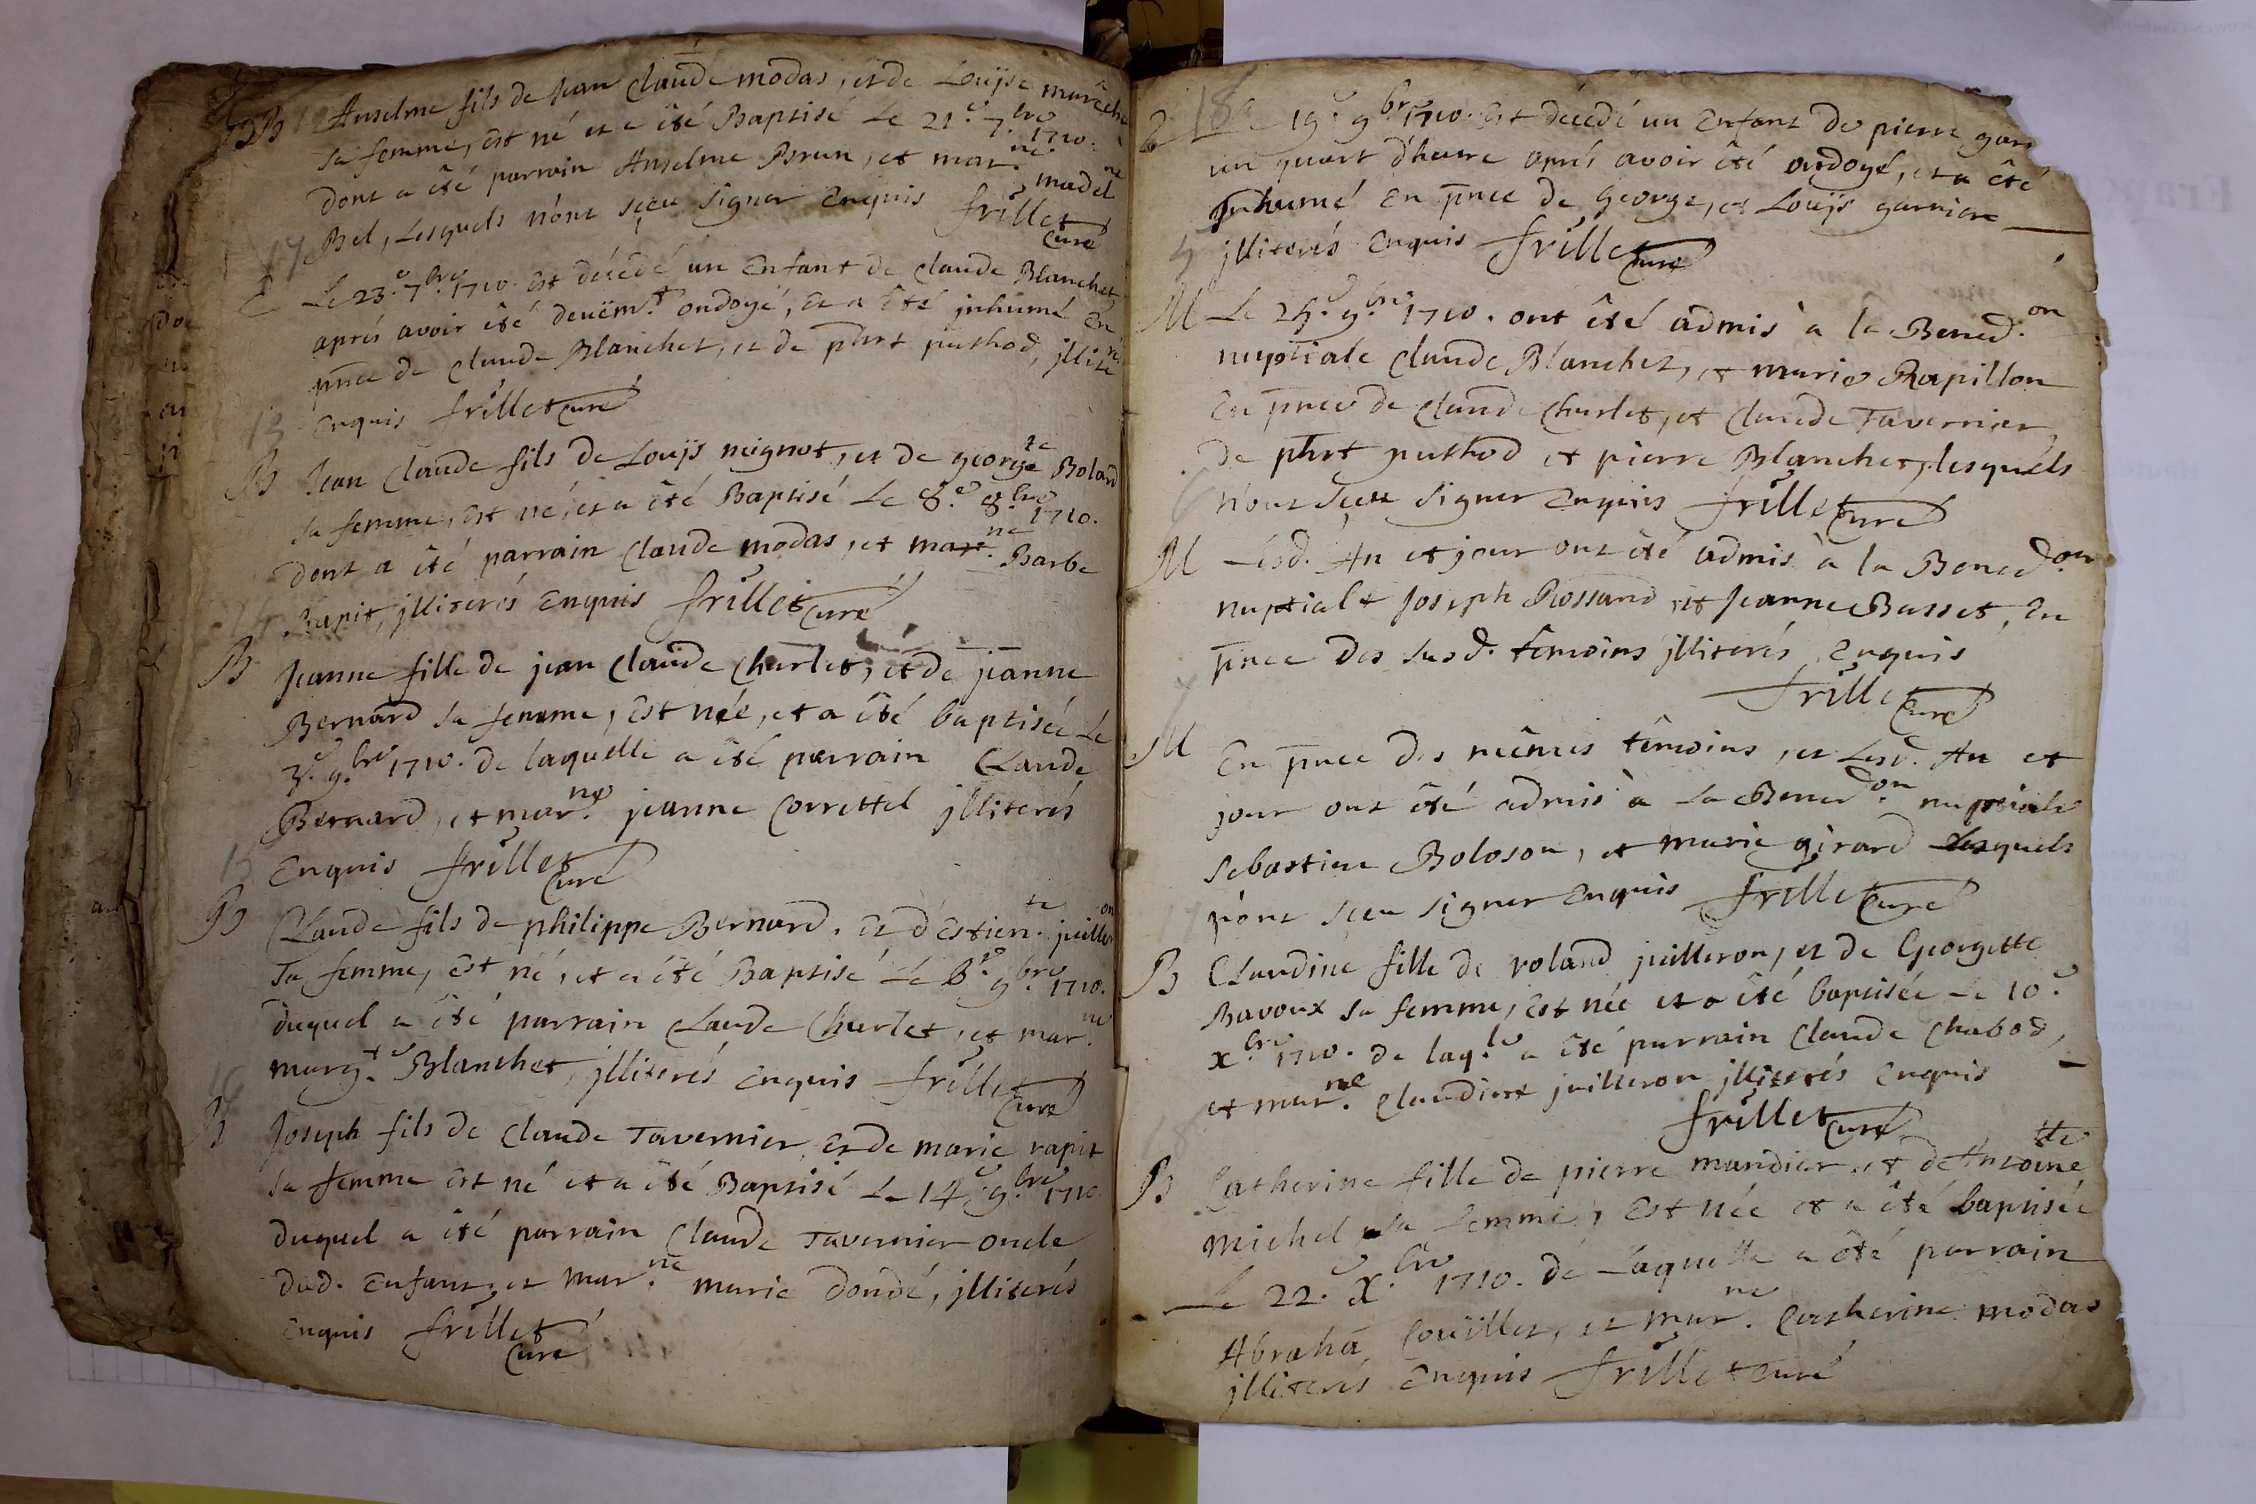 B Anselme fils de Jean Claude modas, et de Louijse marêchal
sa femme, est né et a été Baptisé Le 21.e 7.bre 1710.
dont a été parrain Anselme Brun, et mar.ne madel.ne
Bel, Lesquels n'ont sçeu signer Enquis frillet
Curé
17
Le 23.e 7.bre 1710. est décédé un Enfant de Claude Blanchet
aprés avoir été deuëm.t ondoyé, Et a été jnhumé En
pnce de Claude Blanchet, et de phrt puthod, jllité
Enquis frillet Curé
13
B Jean Claude fils de Louijs mignot, et de georg.te Boland
sa femme, est né, et a été Baptisé Le 8.e 8.bre 1710.
dont a été parrain Claude modas, et mar.ne Barbe
Rapit, jlliterés Enquis frillet Curé
B Jeanne fille de jean Claude Charlet, et de jeanne
Bernard sa femme, Est née, et a été baptisée Le
3.e 9.bre 1710. de laquelle a été parrain Claude
Bernard, et mar.ne jeanne Correttel jlliterés
Enquis frillet Curé
15
B Claude fils de philippe Bernard. Et d'Estien.te juiller.on
sa femme, est né, et a été Baptisé Le 6.e 9.bre 1710.
duquel a été parrain Claude Charlet, et mar.ne
marg.te Blanchet, jlliterés Enquis frillet
Curé
16
B Joseph fils de Claude Tavernier, Et de marie rapit
sa femme est né et a été Baptisé Le 14.e 9.bre 1710.
duquel a été parrain Claude Tavernier oncle
dud. Enfant, et mar.ne marie dondé, jlliterés
Enquis frillet
Curé
18 Le 19.e 9.bre 1710. Est décédé un Enfant de pierre gar
un quart d'heure aprés avoir été ondoyé, et a été
Jnhumé En pnce de George, et Louijs garniere
jlliterés Enquis frillet Curé
M Le 25.e 9.bre 1710. ont été admis à la Bened.on
nuptiale Claude Blanchet, et marie Rapillon
En pnce de Claude Charlet, et Claude Tavernier,
de phrt puthod et pierre Blanchet, lesquels
n'ont sçeu signer Enquis frillet Curé
M Lesd. An et jour ont été admis à la Bened.on
nuptiale Joseph Rossand, et Jeanne Busset, En
pnce des susd. têmoins jlliterés, Enquis
frillet Curé
M En pnce des mêmes têmoins, et Lesd. An et
jour ont été admis à la Bened.on nuptiale
Sebastien Boloson, et marie girard Lesquels
n'ont sçeu signer Enquis frillet Curé
B Claudine fille de roland juilleron, et de Georgette
Bavoux sa femme, Est née et a été baptisée Le 10.e
x.bre 1710. de laq.le a été parrain Claude Chabod,
et mar.ne Claudine juilleron jlliterés Enquis
frillet Curé
B Catherine fille de pierre mandier, et de Antoine.tte
Michel sa femme, Est née et a été baptisée
Le 22.e X.bre 1710. de Laquelle a été parrain
Abrahã Coüillet, et mar.ne Catherine modas
jlliterés Enquis frillet Curé